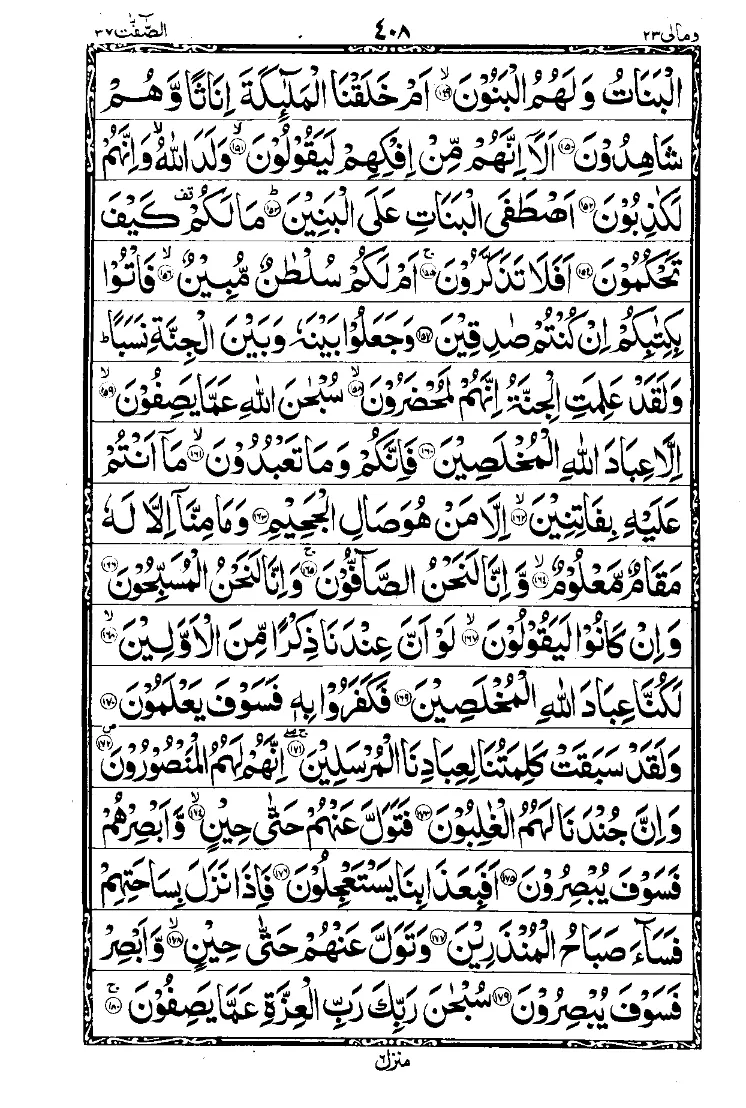 الصّٰٓفّٰت ٣٧ ٤٠٨ ومالی ٢٣
الْبَنَاتُ وَلَهُمُ الْبَنُوْنَ ۙ﴿١٤٩﴾ اَمْ خَلَقْنَا الْمَلٰٓئِكَةَ اِنَاثًا وَّهُمْ
شَاهِدُوْنَ ﴿١٥٠﴾ اَلَاۤ اِنَّهُمْ مِّنْ اِفْكِهِمْ لَيَقُوْلُوْنَ ۙ﴿١٥١﴾ وَلَدَ اللّٰهُ ۙ وَاِنَّهُمْ
لَكٰذِبُوْنَ ﴿١٥٢﴾ اَصْطَفَى الْبَنَاتِ عَلَى الْبَنِيْنَ ؕ﴿١٥٣﴾ مَا لَكُمْ ۟ كَيْفَ
تَحْكُمُوْنَ ﴿١٥٤﴾ اَفَلَا تَذَكَّرُوْنَ ۚ﴿١٥٥﴾ اَمْ لَكُمْ سُلْطٰنٌ مُّبِيْنٌ ۙ﴿١٥٦﴾ فَاْتُوْا
بِكِتٰبِكُمْ اِنْ كُنْتُمْ صٰدِقِيْنَ ﴿١٥٧﴾ وَجَعَلُوْا بَيْنَهٗ وَبَيْنَ الْجِنَّةِ نَسَبًا ؕ
وَلَقَدْ عَلِمَتِ الْجِنَّةُ اِنَّهُمْ لَمُحْضَرُوْنَ ۙ﴿١٥٨﴾ سُبْحٰنَ اللّٰهِ عَمَّا يَصِفُوْنَ ۙ﴿١٥٩﴾
اِلَّا عِبَادَ اللّٰهِ الْمُخْلَصِيْنَ ﴿١٦٠﴾ فَاِنَّكُمْ وَمَا تَعْبُدُوْنَ ۙ﴿١٦١﴾ مَاۤ اَنْتُمْ
عَلَيْهِ بِفَاتِنِيْنَ ۙ﴿١٦٢﴾ اِلَّا مَنْ هُوَ صَالِ الْجَحِيْمِ ﴿١٦٣﴾ وَمَا مِنَّاۤ اِلَّا لَهٗ
مَقَامٌ مَّعْلُوْمٌ ۙ﴿١٦٤﴾ وَّاِنَّا لَنَحْنُ الصَّآفُّوْنَ ۚ﴿١٦٥﴾ وَاِنَّا لَنَحْنُ الْمُسَبِّحُوْنَ ﴿١٦٦﴾
وَاِنْ كَانُوْا لَيَقُوْلُوْنَ ۙ﴿١٦٧﴾ لَوْ اَنَّ عِنْدَنَا ذِكْرًا مِّنَ الْاَوَّلِيْنَ ۙ﴿١٦٨﴾
لَكُنَّا عِبَادَ اللّٰهِ الْمُخْلَصِيْنَ ﴿١٦٩﴾ فَكَفَرُوْا بِهٖ فَسَوْفَ يَعْلَمُوْنَ ﴿١٧٠﴾
وَلَقَدْ سَبَقَتْ كَلِمَتُنَا لِعِبَادِنَا الْمُرْسَلِيْنَ ۚۖ﴿١٧١﴾ اِنَّهُمْ لَهُمُ الْمَنْصُوْرُوْنَ ۪﴿١٧٢﴾
وَاِنَّ جُنْدَنَا لَهُمُ الْغٰلِبُوْنَ ﴿١٧٣﴾ فَتَوَلَّ عَنْهُمْ حَتّٰى حِيْنٍ ۙ﴿١٧٤﴾ وَّاَبْصِرْهُمْ
فَسَوْفَ يُبْصِرُوْنَ ﴿١٧٥﴾ اَفَبِعَذَابِنَا يَسْتَعْجِلُوْنَ ﴿١٧٦﴾ فَاِذَا نَزَلَ بِسَاحَتِهِمْ
فَسَآءَ صَبَاحُ الْمُنْذَرِيْنَ ﴿١٧٧﴾ وَتَوَلَّ عَنْهُمْ حَتّٰى حِيْنٍ ۙ﴿١٧٨﴾ وَّاَبْصِرْ
فَسَوْفَ يُبْصِرُوْنَ ﴿١٧٩﴾ سُبْحٰنَ رَبِّكَ رَبِّ الْعِزَّةِ عَمَّا يَصِفُوْنَ ۚ﴿١٨٠﴾
منزل ٦